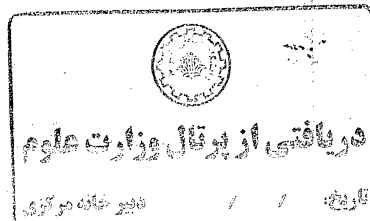 دریافتی از پرتال وزارت علوم
تاریخ: / / دبیر خانه مرکزی